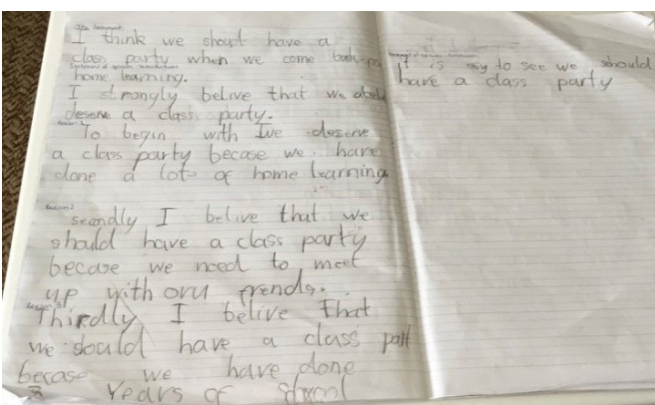 I think we shoud have a
class party when we come back
home learning.
I strongly belive that we
deserve a class party.
To begin with we deserve
a class party becase we have
done a lot of home learning
secondly I belive that we
should have a class party
becase we need to meet
up with oru frends.
Thirdly I belive that
we should have a class
becase we have done
Years of school
It is esy to see we should
have a class party